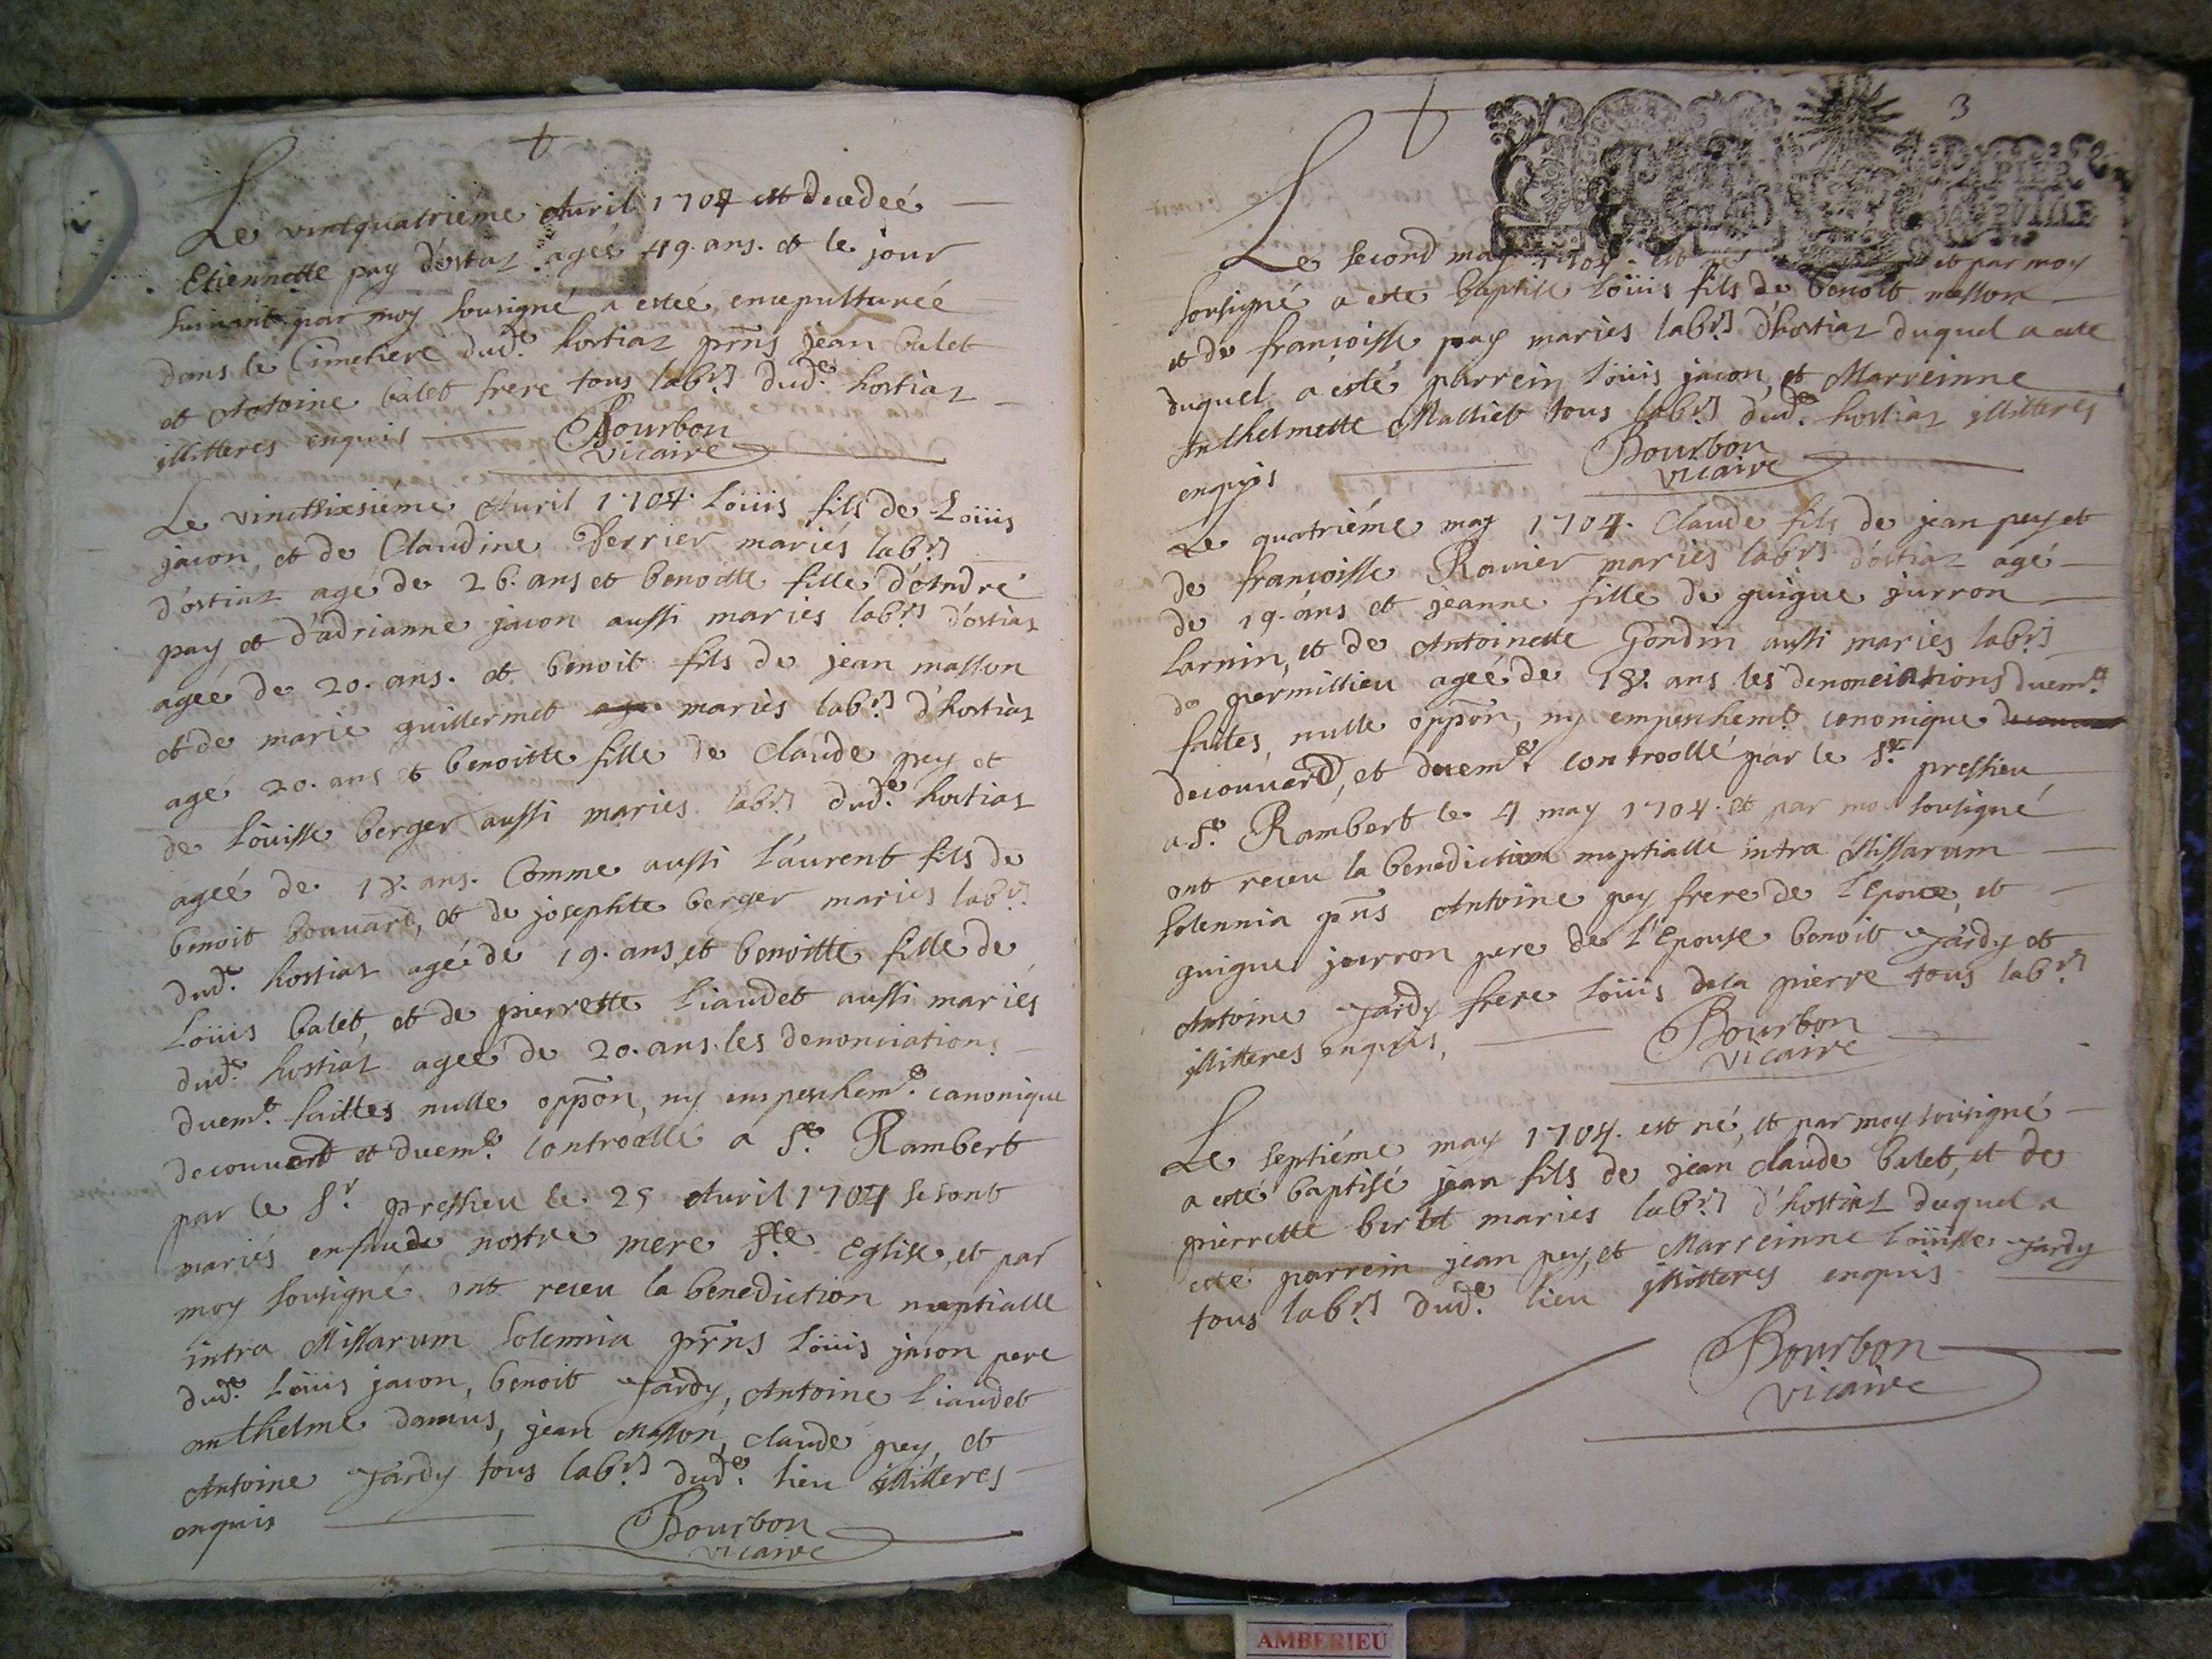 Le vintquatriéme Auril 1704 est decedeé
Etiennette pay d'ostiaz ageé 49. ans. et le jour
suiuant par moy sousigné a esteé, ensepultureé
dans le Cimetiere dud.e hostiaz prñs jean balet
et Antoine balet frere tous labrs dud.e hostiaz
illitteres enquis
Bourbon
vicaire
Le vinctsixsiéme Auril 1704. Loüis fils de Loüis
jacon, et de Claudine Perrier mariés labrs
d'ostiaz agé de 26. ans et benoitte fille d'Andre
pay et d'adrianne jacon aussi mariés labrs d'ostiaz
ageé de 20. ans. et benoit fils de jean masson
et de marie guillermet mariés labrs d'hostiaz
agé 20. ans et benoitte fille de Claude pey et
de Loüisse berger aussi mariés labrs dud.e hostiaz
ageé de 18. ans. Comme aussi Laurent fils de
benoit bouuard, et de josephte berger mariés labrs
dud.e hostiaz agé de 19. ans et benoitte fille de
Loüis balet, et de pierrette Liaudet aussi mariés
dud.e hostiaz ageé de 20. ans. les denonciations
duem.t faittes nulle oppõn, ny empeschem.t canonique
decouuert et duem.t controollé a S.t Rambert
par le S.r pressieu le 25 Auril 1704 se sont
mariés en de nostre mere S.te Eglise, et par
moy sousigné ont receu la benediction nuptialle
intra Missarum solemnia prñs Loüis jacon pere
dud.e Loüis jacon, benoit Jardy, Antoine Liaudet
anthelme damus, jean Masson, claude pey, et
Antoine Jardy tous labrs dud.e lieu illitteres
enquis
Bourbon
vicaire
3
PAPIER
Le second may 1704. est né et par moy
sousigné a este baptisé Loüis fils de benoit masson
et de françoisse pay mariés labrs d'hostiaz duquel a este
duquel a esté parrein Loüis jacon, et Marreinne
Anthelmette Malliet tous labrs dud.e hostiaz illitteres
enquis
Bourbon
vicaire
Le quatriéme may 1704. Claude fils de jean pey et
de françoisse Rauier mariés labrs d'ostiaz agé
de 19. ans et jeanne fille de guigue jurron
Larnin, et de Antoinette Gondin aussi mariés labrs
de permillieu ageé de 18. ans les denonciations duem.t
faites, nulle oppõn, ny empeschem.t canonique
decouuerd, et duem.t controollé par le S.r pressieu
a S.t Rambert le 4 may 1704. et par moy sousigné
ont receu la benediction nuptialle intra Missarum
solemnia pñs Antoine pey frere de l'Epoux, et
guigue jurron pere de l'Epouse benoit Jardy et
Antoine Jardy frere Loüis dela pierre tous labrs
illitteres enquis,
Bourbon
vicaire
Le septiéme may 1704. est né, et par moy sousigné
a esté baptisé jean fils de jean claude balet, et de
pierrette mariés labrs d'hostiaz duquel a
esté parrein jean pey, et Marreinne Loüisse Jardy
tous labrs dud.e lieu illitteres enquis
Bourbon
vicaire
AMBERIEU